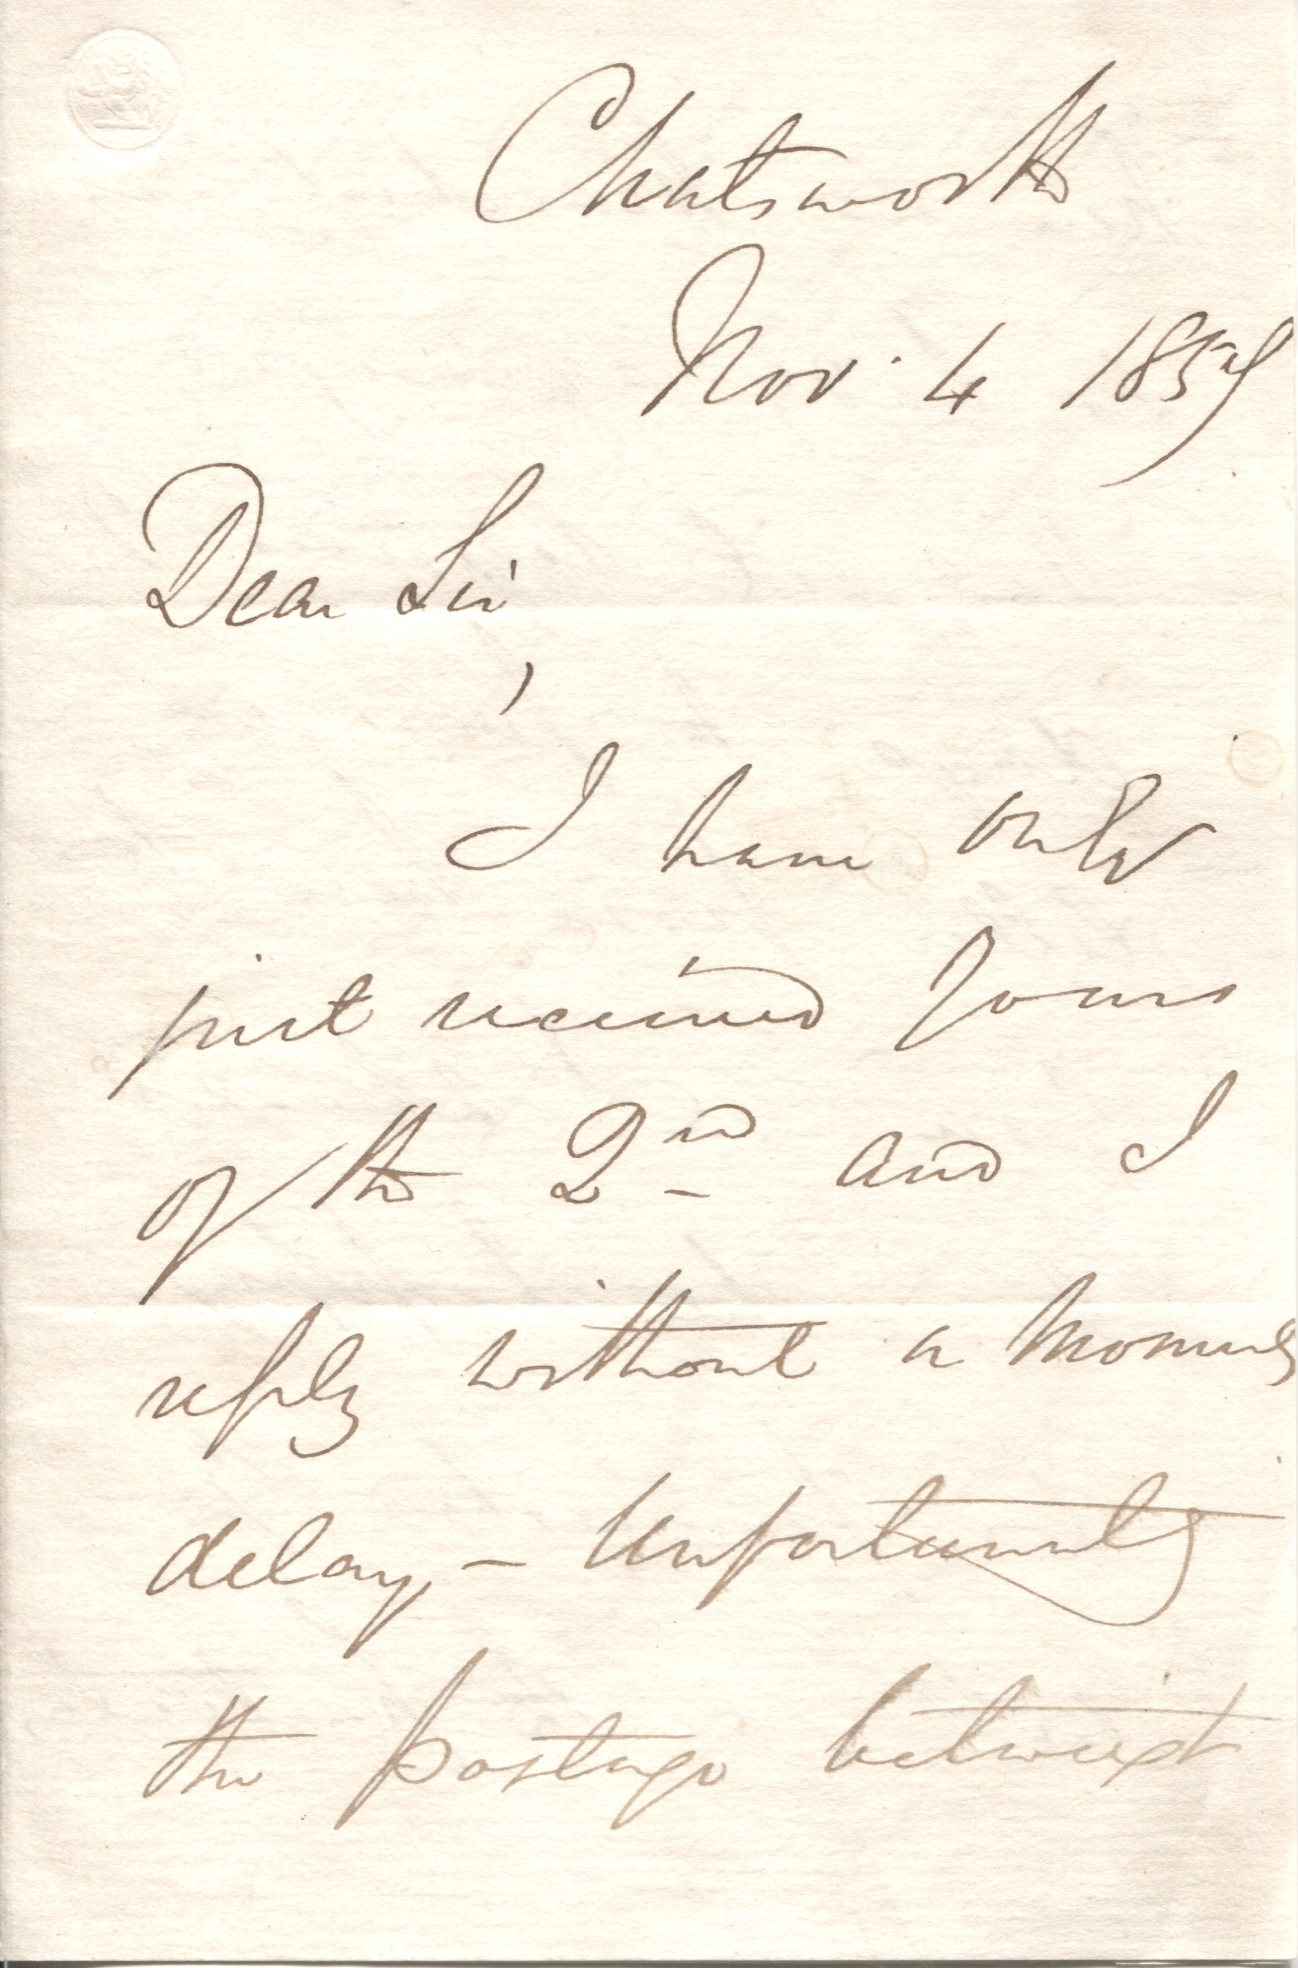 Chatsworth
Nov. 4 1859
Dear Sir,
I have only
just received yours
of the 2nd and I
reply without a moments
delay – Unfortunately
the postage betwixt